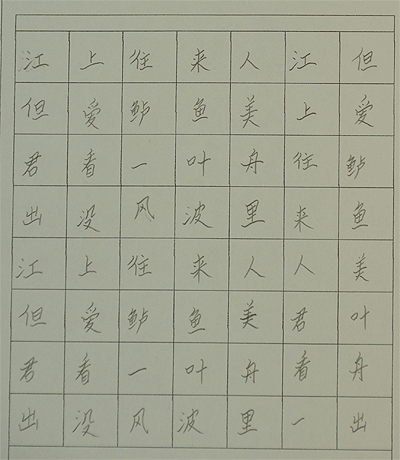 江上往来人江但
但爱鲈鱼美上爱
君看一叶舟往鲈
出没风波里来鱼
江上往来人人美
但爱鲈鱼美君叶
君看一叶舟看舟
出没风波里一出